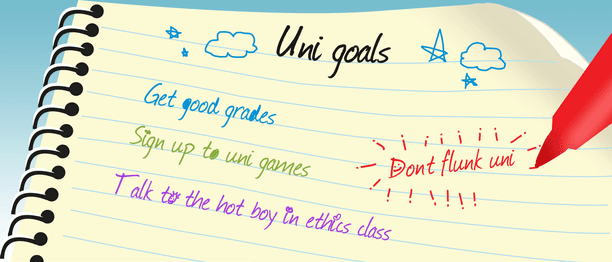 Uni goals
Get good grades
Sign up to uni games
Dont flunk uni
Talk to the hot boy in ethics class